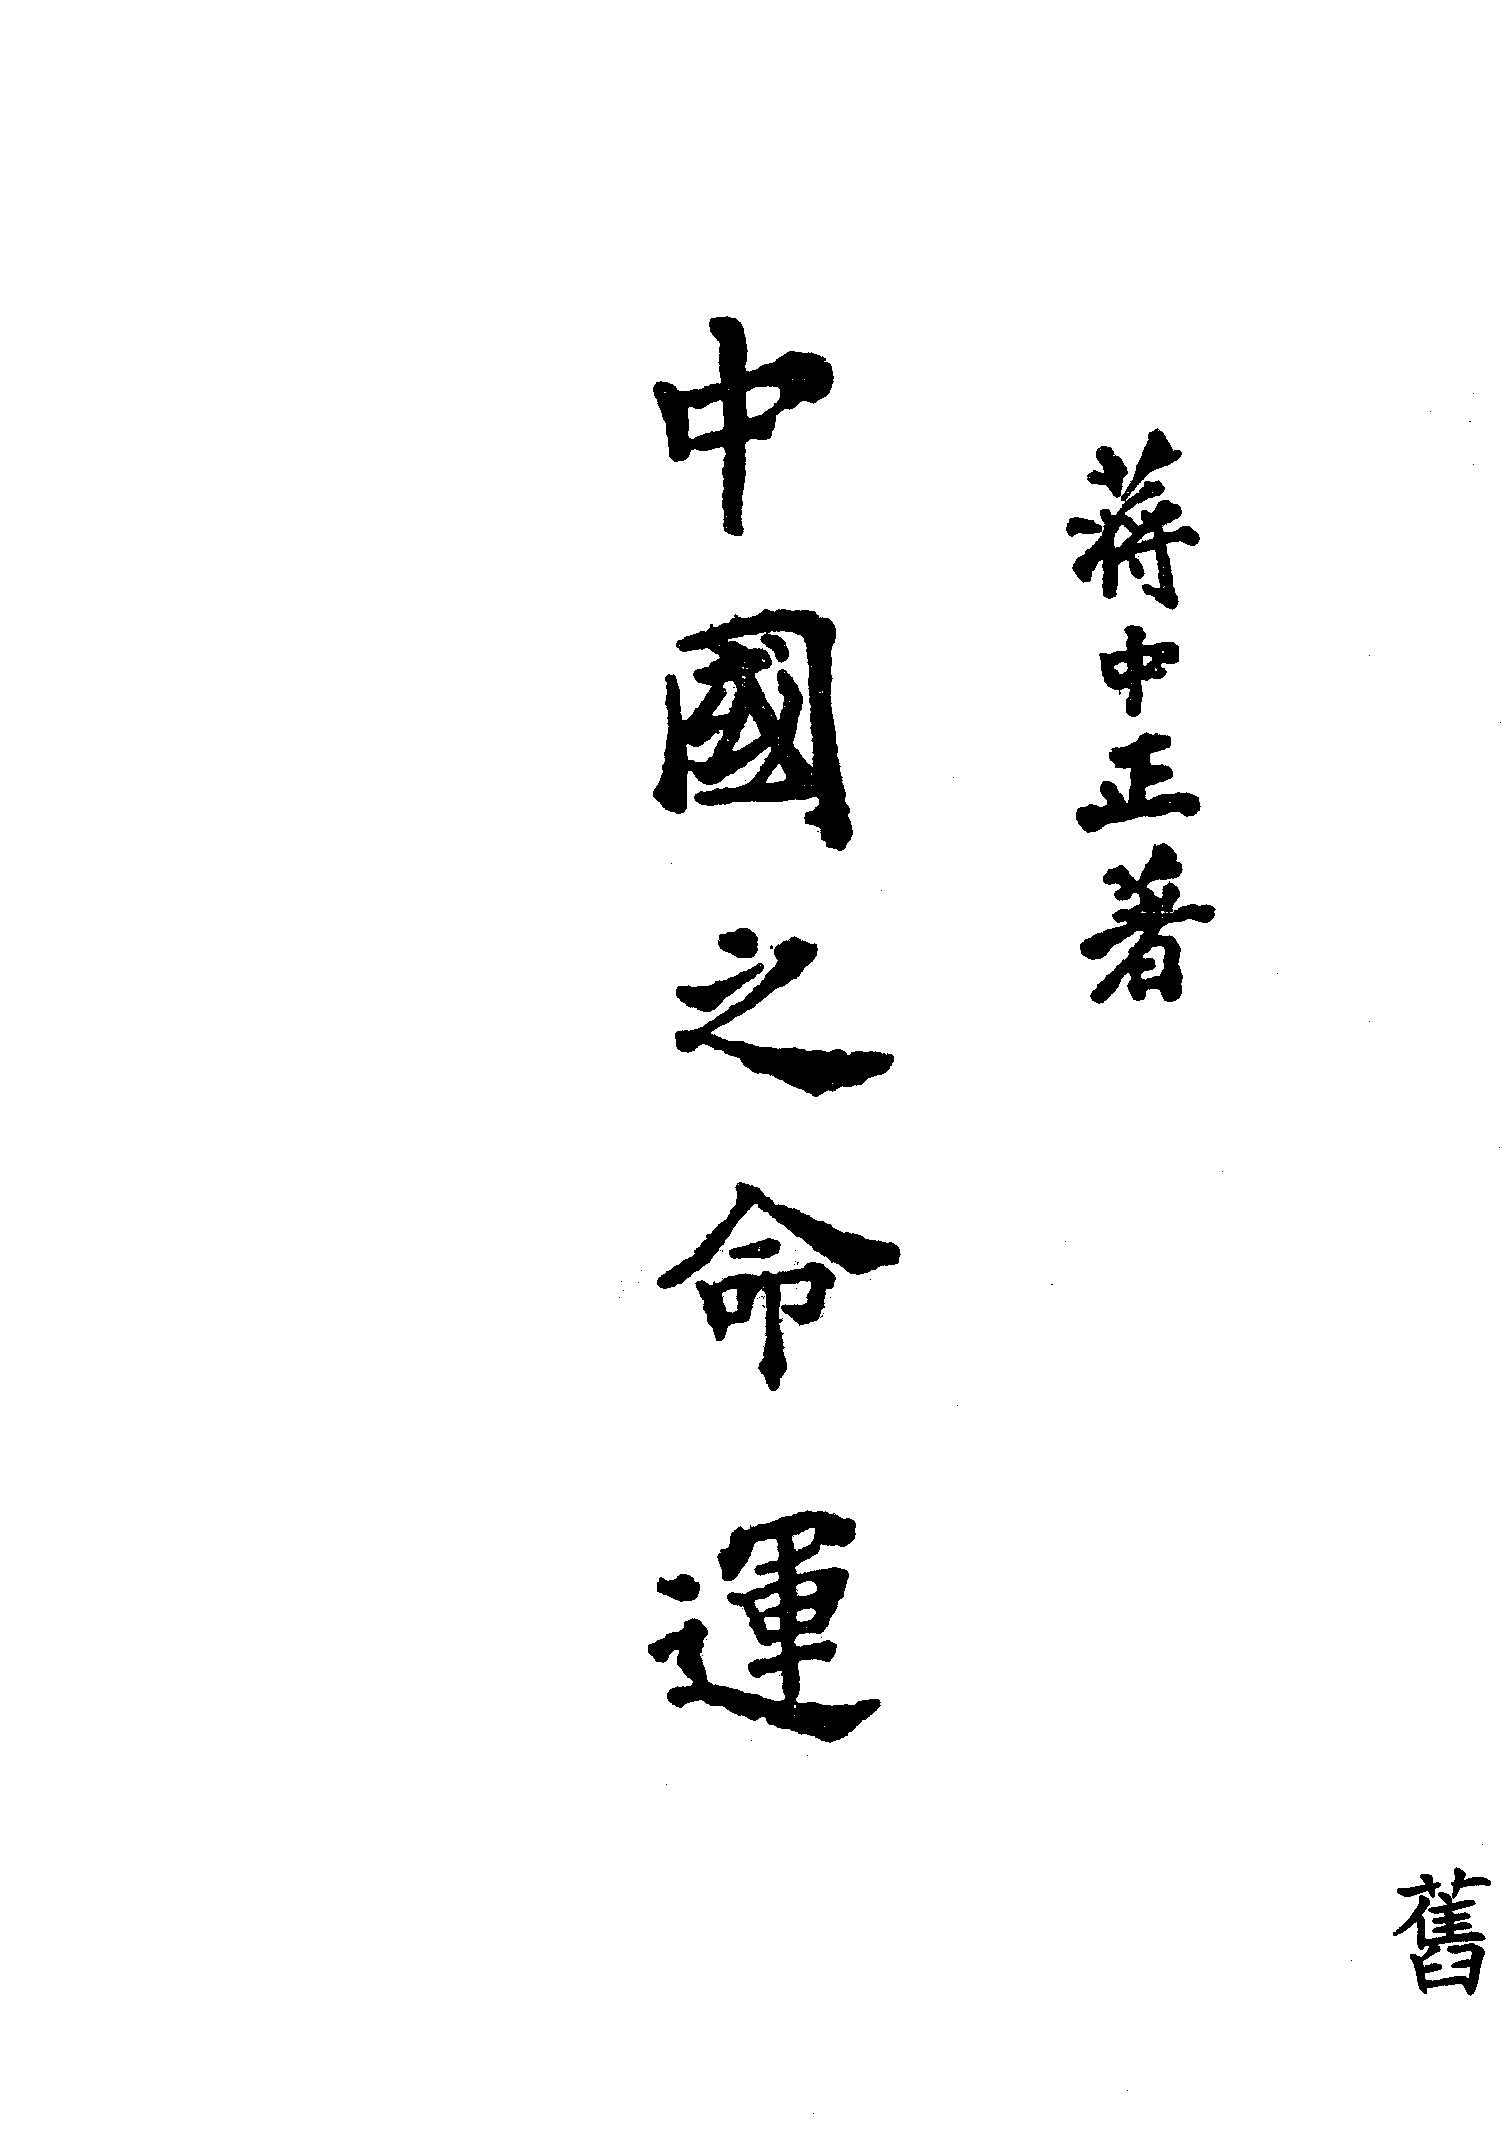 蔣中正著
中國之命運
舊